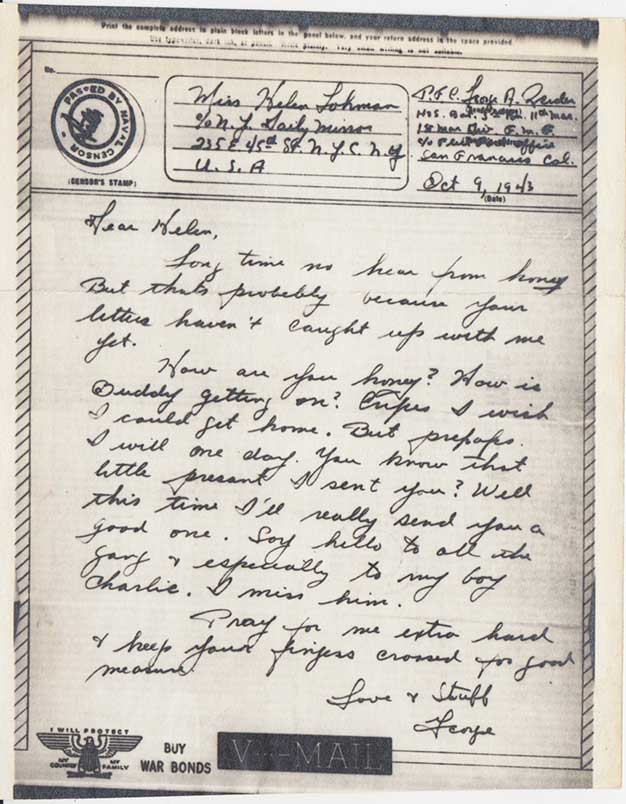 Print the complete address in plain block letters in the panel below, and your return address in the space provided.
Use typewriter, dark ink, or pencil. Write plainly. Very small writing is not suitable.
No.
PASSED BY NAVAL CENSOR
(CENSOR'S STAMP)
Miss Helen Lohman
c/o N.Y. Daily Mirror
235 E 45th St. N.Y.C. N.Y
U.S.A
P.F.C. George A.
H+S. Bat. 11th Mar.
1st Mar Div. F.M.F.
c/o Fleet Post Office
San Francisco Cal.
Oct 9, 1943
(Date)
Dear Helen,
Long time no hear from honey
But thats probably because your
letters haven't caught up with me
yet.
How are you honey? How is
Buddy getting on? Cripes I wish
I could get home. But prepaps.
I will one day. You know that
little presant I sent you? Well
this time I'll really send you a
good one. Say hello to all the
gang & especially to my boy
Charlie. I miss him.
Pray for me extra hard
& keep your fingers crossed for good
measure.
Love & Stuff
George
I WILL PROTECT
MY COUNTRY MY FAMILY
BUY
WAR BONDS
V···—MAIL